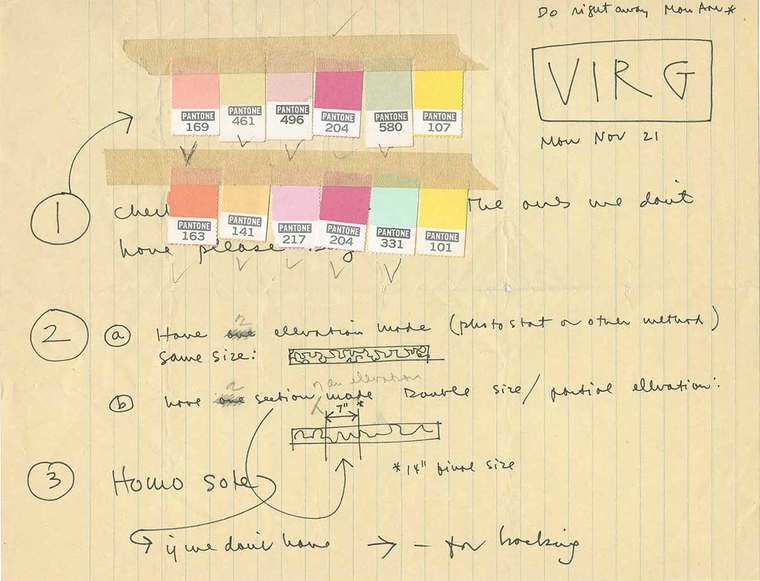 Do right away Mon Am *
VIRG
Mon Nov 21
PANTONE 169 PANTONE 461 PANTONE 496 PANTONE 204 PANTONE 580 PANTONE 107
PANTONE 163 PANTONE 141 PANTONE 217 PANTONE 204 PANTONE 331 PANTONE 101
1 the ones we don't
have please
2 a Have 2 elevation made (photostat or other method)
same size:
an elevation
b have 2 section made Double size / partial elevation:
7" *
* 14" final size
3 Homosote
if we don't have → – for backing